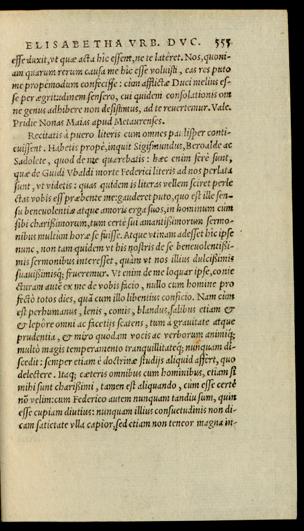 ELISABETHA VRB. DVC. 555
esse duxit, ut quæ acta hic essent, ne te lateret. Nos, quoni-
am quarum rerum causa me hic esse uoluisti, eas res puto
me propemodum confecisse: cùm afflictæ Duci melius es-
se per ægritudinem sensero, cui quidem consolationis om
ne genus adhibere non desistimus, ad te reuertemur. Vale.
Pridie Nonas Maias apud Metaurenses.
Recitatis à puero literis cum omnes paulisper conti-
cuissent. Habetis propè, inquit Sigismundus, Beroalde ac
Sadolete, quod de me quærebatis: hæc enim ferè sunt,
quæ de Guidi Vbaldi morte Federici literis ad nos perlata
sunt, ut uidetis: quas quidem is literas uellem scire perle
ctas uobis esse præbente me: gauderet puto, quo est ille sen-
su beneuolentiæ atque amoris erga suos, in hominum cum
sibi charißimorum, tum certè sui amantißimorum sermo-
nibus multum horæ se fuisse. Atque utinam adesset hic ipse
nunc, non tam quidem ut his nostris de se beneuolentißi-
mis sermonibus interesset, quàm ut nos illius dulcißimis
suauißimisq; frueremur. Vt enim de me loquar ipse, conie
cturam autē ex me de uobis facio, nullo cum homine pro
fectò totos dies, quā cum illo libentius conficio. Nam cùm
est perhumanus, lenis, comis, blandus, salibus etiam &
& lepôre omni ac facetijs scatens, tum à grauitate atque
prudentia, & miro quodam uocis ac uerborum animiq;
multò magis temperamento tranquillitateq; nunquam di-
scedit: semper etiam è doctrinæ studijs aliquid affert, quo
delectere. Itaq; cæteris omnibus cum hominibus, etiam si
mihi sunt charißimi, tamen est aliquando, cùm esse certè
nō uelim: cum Federico autem nunquam tandiu sum, quin
esse cupiam diutius: nunquam illius consuetudinis non di-
cam satietate ulla capior, sed etiam non teneor magna in-